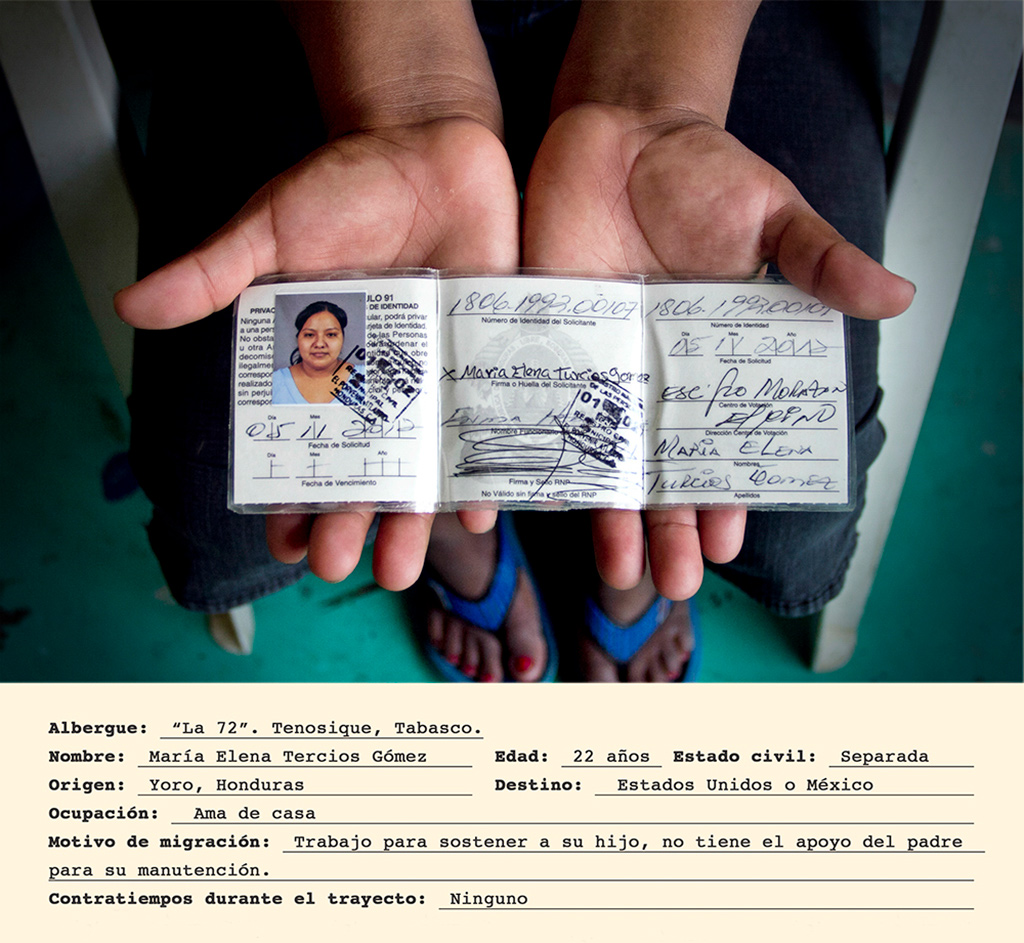 PRIVAC
ULO 91
DE IDENTIDAD
Ninguna
a una perso
No obsta
u otra A
decomis
ilegalme
correspo
realizado
sin perju
correspo
ular, podrá privar
rjeta de Identidad.
de las Personas
Día Mes
05 11 2012
Fecha de Solicitud
Día Mes Año
Fecha de Vencimiento
1806.1993.00107
Número de Identidad del Solicitante
x Maria Elena Turcios Gomez
Firma o Huella del Solicitante
Firma y Sello RNP
No Válido sin firma y sello del RNP
1806.1993.00107
Número de Identidad
Día Mes Año
05 11 2012
Fecha de Solicitud
Centro de Votación
Dirección Centro de Votación
MARIA ELENA
Nombres
Turcios Gomez
Apellidos
Albergue: “La 72”. Tenosique, Tabasco.
Nombre: María Elena Tercios Gómez Edad: 22 años Estado civil: Separada
Origen: Yoro, Honduras Destino: Estados Unidos o México
Ocupación: Ama de casa
Motivo de migración: Trabajo para sostener a su hijo, no tiene el apoyo del padre
para su manutención.
Contratiempos durante el trayecto: Ninguno